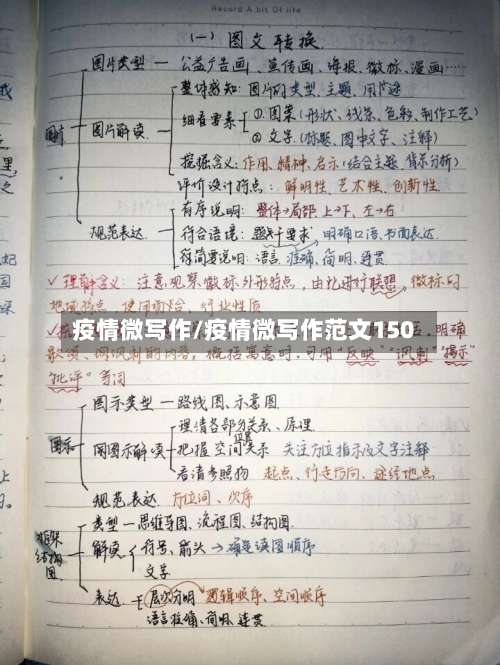 Record A bit Of life
(一) 图文转换
图片类型 — 公益广告画、宣传画、海报、徽标、漫画……
整体感知：图片的类型、主题、用途
图片解读
细看要素
①图案(形状、线条、色彩、制作工艺)
②文字(标题、图中文字、注释)
挖掘含义：作用、精神、启示(结合主题、背景分析)
评价设计特点：鲜明性、艺术性、创新性
规范表达
有序说明：整体→局部 上→下、左→右
符合语境：题干要求 明确口语、书面表达
简要说明：语言 准确、简明、连贯
✓理解含义：注意观察徽标外形特点，由此进行联想，徽标的
地域特点、使用场合、行业性质
疫情微写作/疫情微写作范文150
明确
讽刺的内容，概括寓意时，可用"反映""讽刺""揭示"
"批评"等词
图示
图示类型 — 路线图、示意图
图示解读
理清各部分关系、原理
把握空间位置关系 关注方位指示及文字注释
看清参照物 起点、行走方向、途经地点
规范表达 方位词、次序
框架结构图
类型 — 思维导图、流程图、结构图
解读
符号、箭头→确定读图顺序
文字
表达
层次分明 逻辑顺序、空间顺序
语言准确、简明、连贯